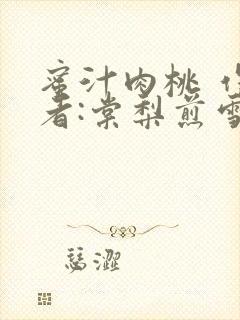 蜜汁肉桃 作
者:棠梨煎雪
瑟澀